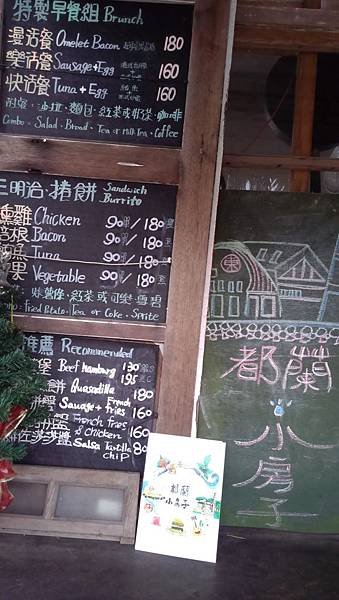 特製早餐組 Brunch
漫活餐 Omelet Bacon 180
樂活餐 Sausage+Egg 160
快活餐 Tuna+Egg 160
附餐:沙拉、麵包、紅茶或奶茶、咖啡
Combo - Salad - Bread - Tea or Milk Tea - Coffee
三明治·捲餅 Sandwich Burrito
燻雞 Chicken 90/180
培根 Bacon 90/180
鮪魚 Tuna 90/180
果 Vegetable 90/180
薯條、紅茶或可樂、雪碧
Fried Potato - Tea or Coke - Sprite
推薦 Recommended
堡 Beef Hamburg 130 195
餅 Quesadilla 160
拼盤 Sausage + French fries 160
拼盤 French fries & Chicken 160
莎莎醬 Salsa Tortilla chip 80
東
都蘭
小房子
都蘭
小房子